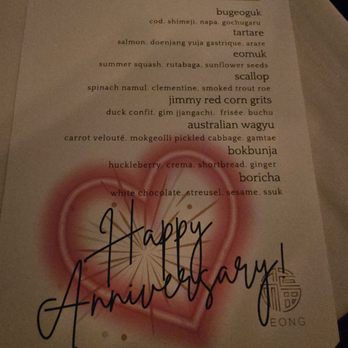 bugeoguk
cod, shimeji, napa, gochugaru
tartare
salmon, doenjang yuja gastrique, araze
eomuk
summer squash, rutabaga, sunflower seeds
scallop
spinach namul, clementine, smoked trout roe
jimmy red corn grits
duck confit, gim jjangachi, frisée, buchu
australian wagyu
carrot velouté, mokgeolli pickled cabbage, gamtae
bokbunja
huckleberry, crema, shortbread, ginger
boricha
white chocolate, streusel, sesame, ssuk
Happy
Anniversary!
EONG